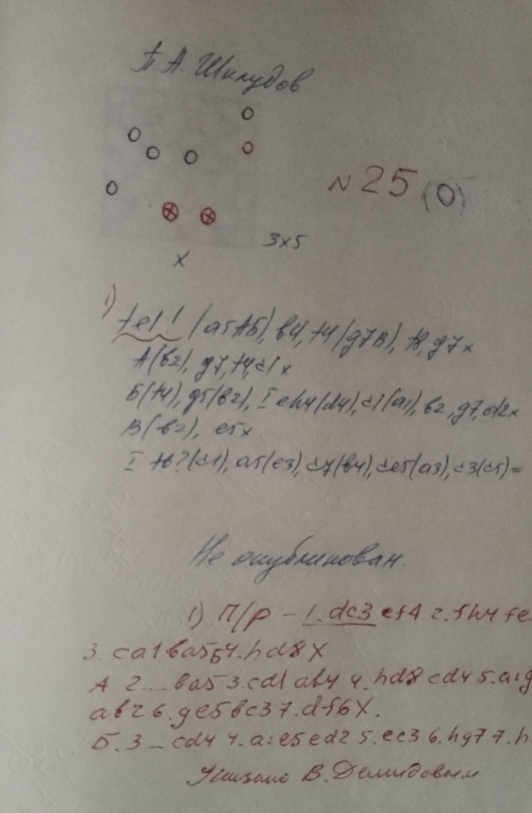 П. А. Шклудов
N 25 (0)
3x5
x
1) fe1! (a5АБ), b4, f4 (g7В), f8, g7x
А(b2), g7, f4, c1x
Б(f4), g5(b2), I eh4(d4), c1(a1), b2, g7, d2x
В(b2), e5x
I f6?(c1), a5(e3), c7(b4), ce5(a3), c3(c5)=
Не опубликован.
1) П/р - 1. dc3 ef4 2. fh4 fe
3. ca1 ba5Б 4. hd8X
А 2... ba5 3. cd1 ab4 4. hd8 cd4 5. a:g
ab2 6. ge5 bc3 7. df6X.
Б. 3 - cd4 4. a:e5 ed2 5. ec3 6. hg7 7. h
В. Демидовым